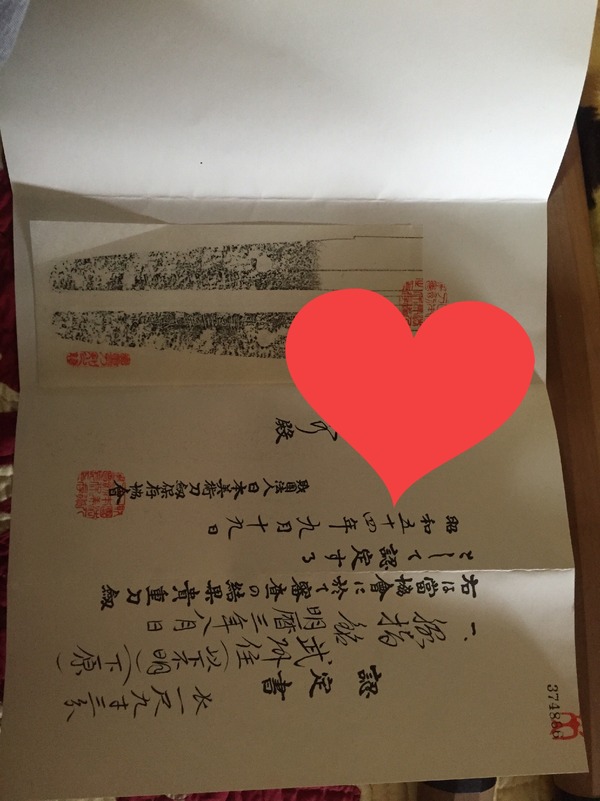 認定書
一、脇指 銘 武州住(以下不明)(下原)
明暦三年八月日
長一尺九寸三分
右は當協會に於て審査の結果貴重刀劔
として認定する
昭和五十四年九月十九日
財團法人日本美術刀劔保存協會
殿